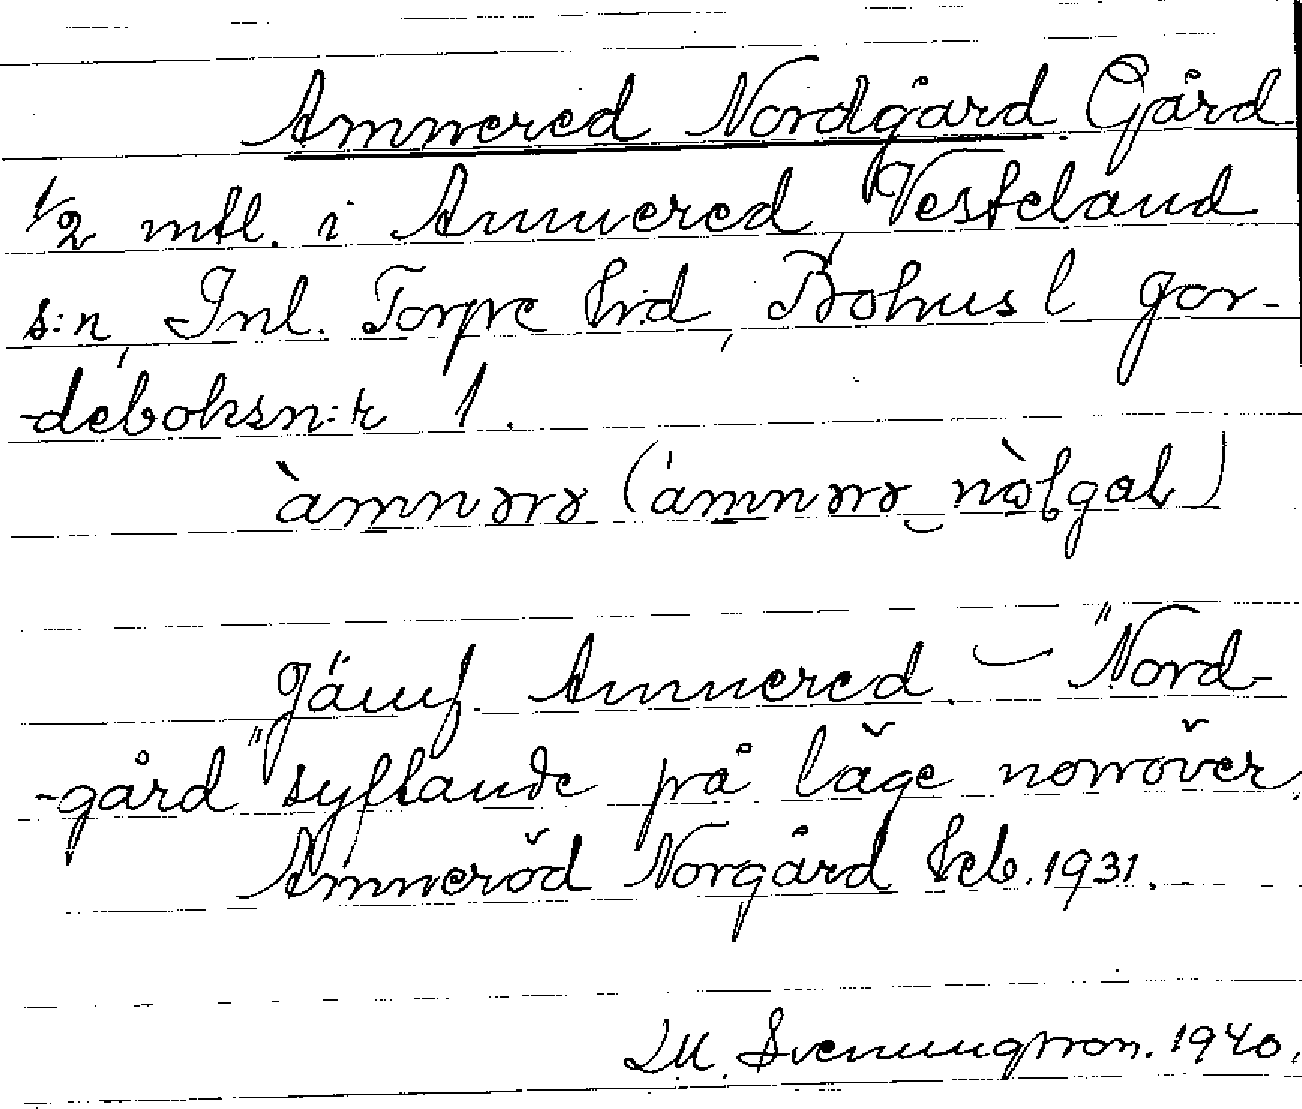 Amnered Nordgård. Gård
1/2 mtl. i Amnered, Vesteland
s:n, Inl. Torpe hrd, Bohusl jor-
-deboksn:r 1.
àmnərə (ámnərə nòḷgaḷ)
Jämf. Amnered. – "Nord-
-gård" syftande på läge norröver.
Amneröd Norgård Feb. 1931.
M. Svenungsson. 1940.